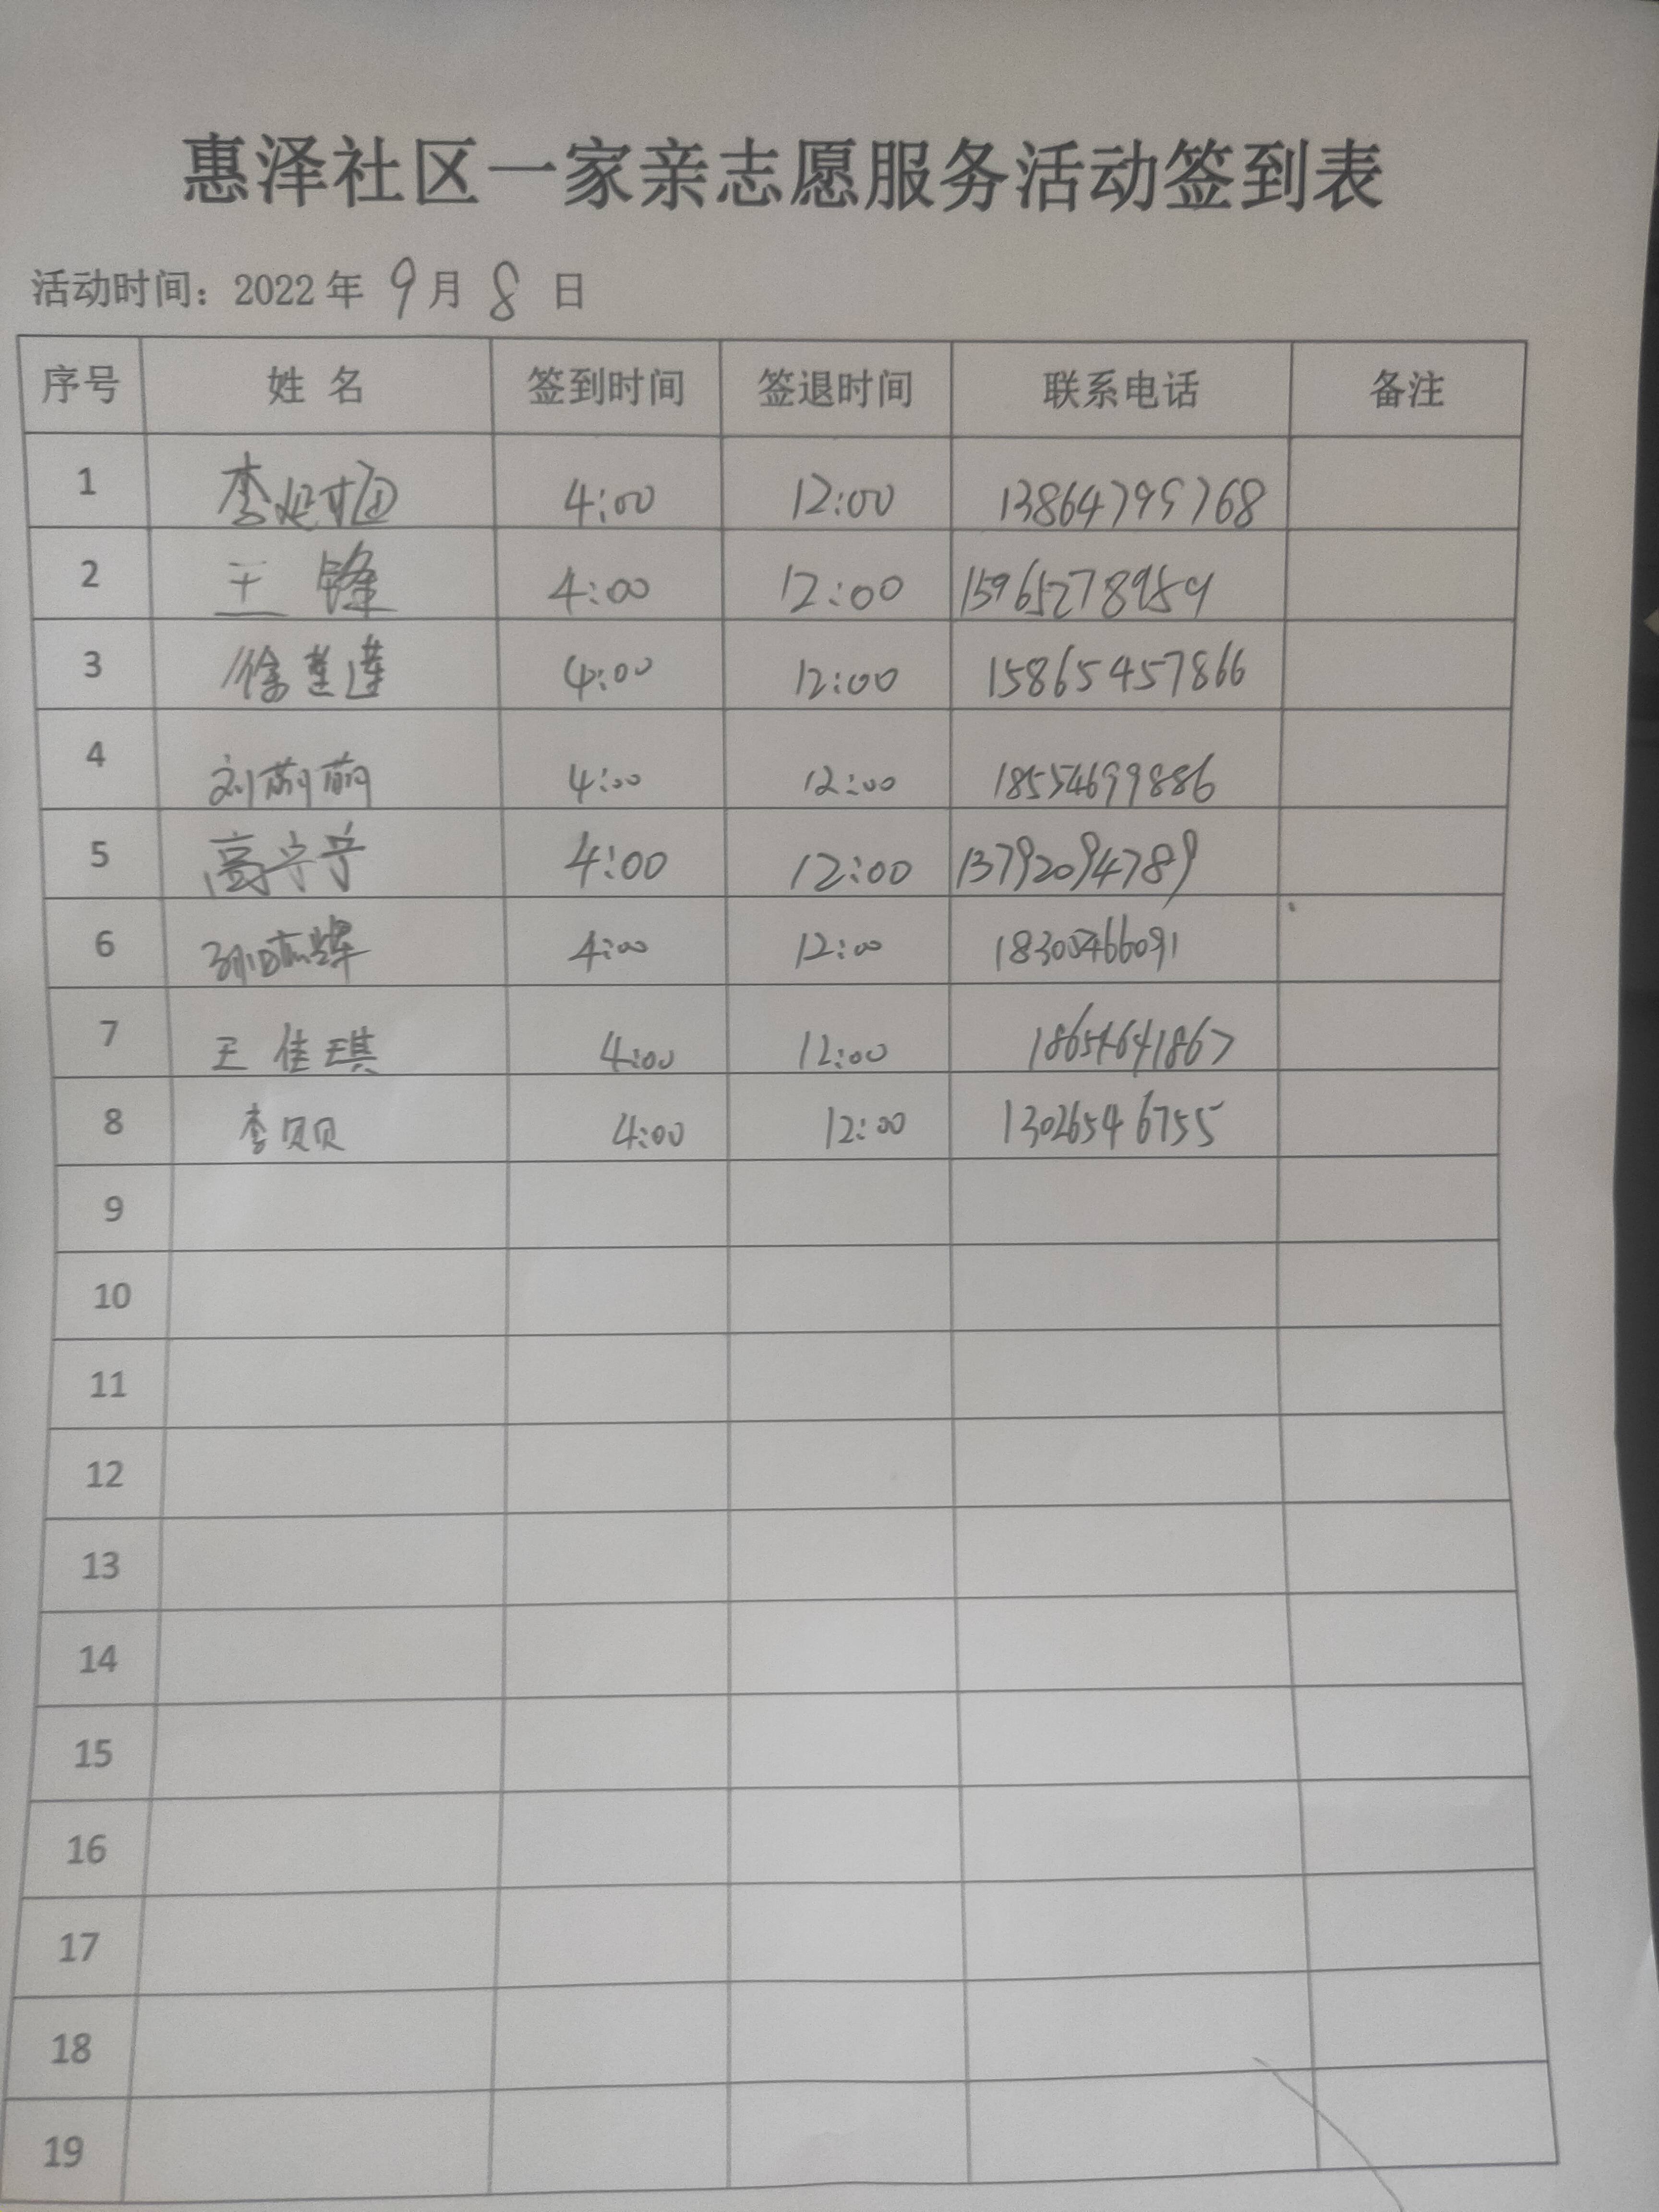 惠泽社区一家亲志愿服务活动签到表
活动时间：2022年 9月 8 日
序号 姓 名 签到时间 签退时间 联系电话 备注
1 李 4:00 12:00 13864799768
2 王 锋 4:00 12:00 15965278959
3 徐莲莲 4:00 12:00 15865457866
4 刘萌萌 4:00 12:00 18554699886
5 高宁宁 4:00 12:00 13792094789
6 孙晓辉 4:00 12:00 18300466091
7 王佳琪 4:00 12:00 18654641867
8 李贝贝 4:00 12:00 13026546755
9
10
11
12
13
14
15
16
17
18
19